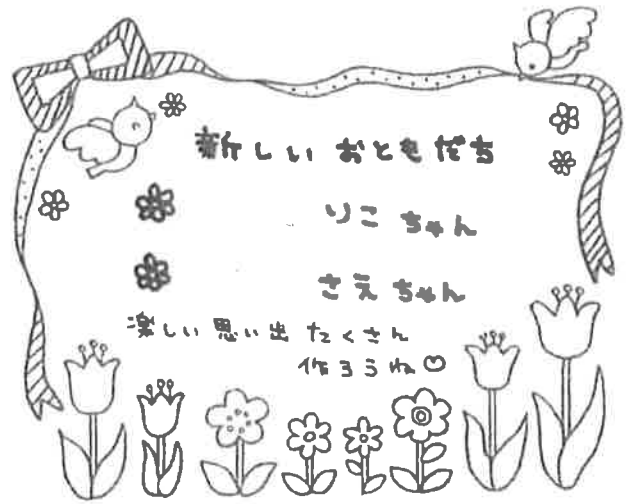 新しい おともだち
りこ ちゃん
さえ ちゃん
楽しい 思い出 たくさん
作ろうね♡